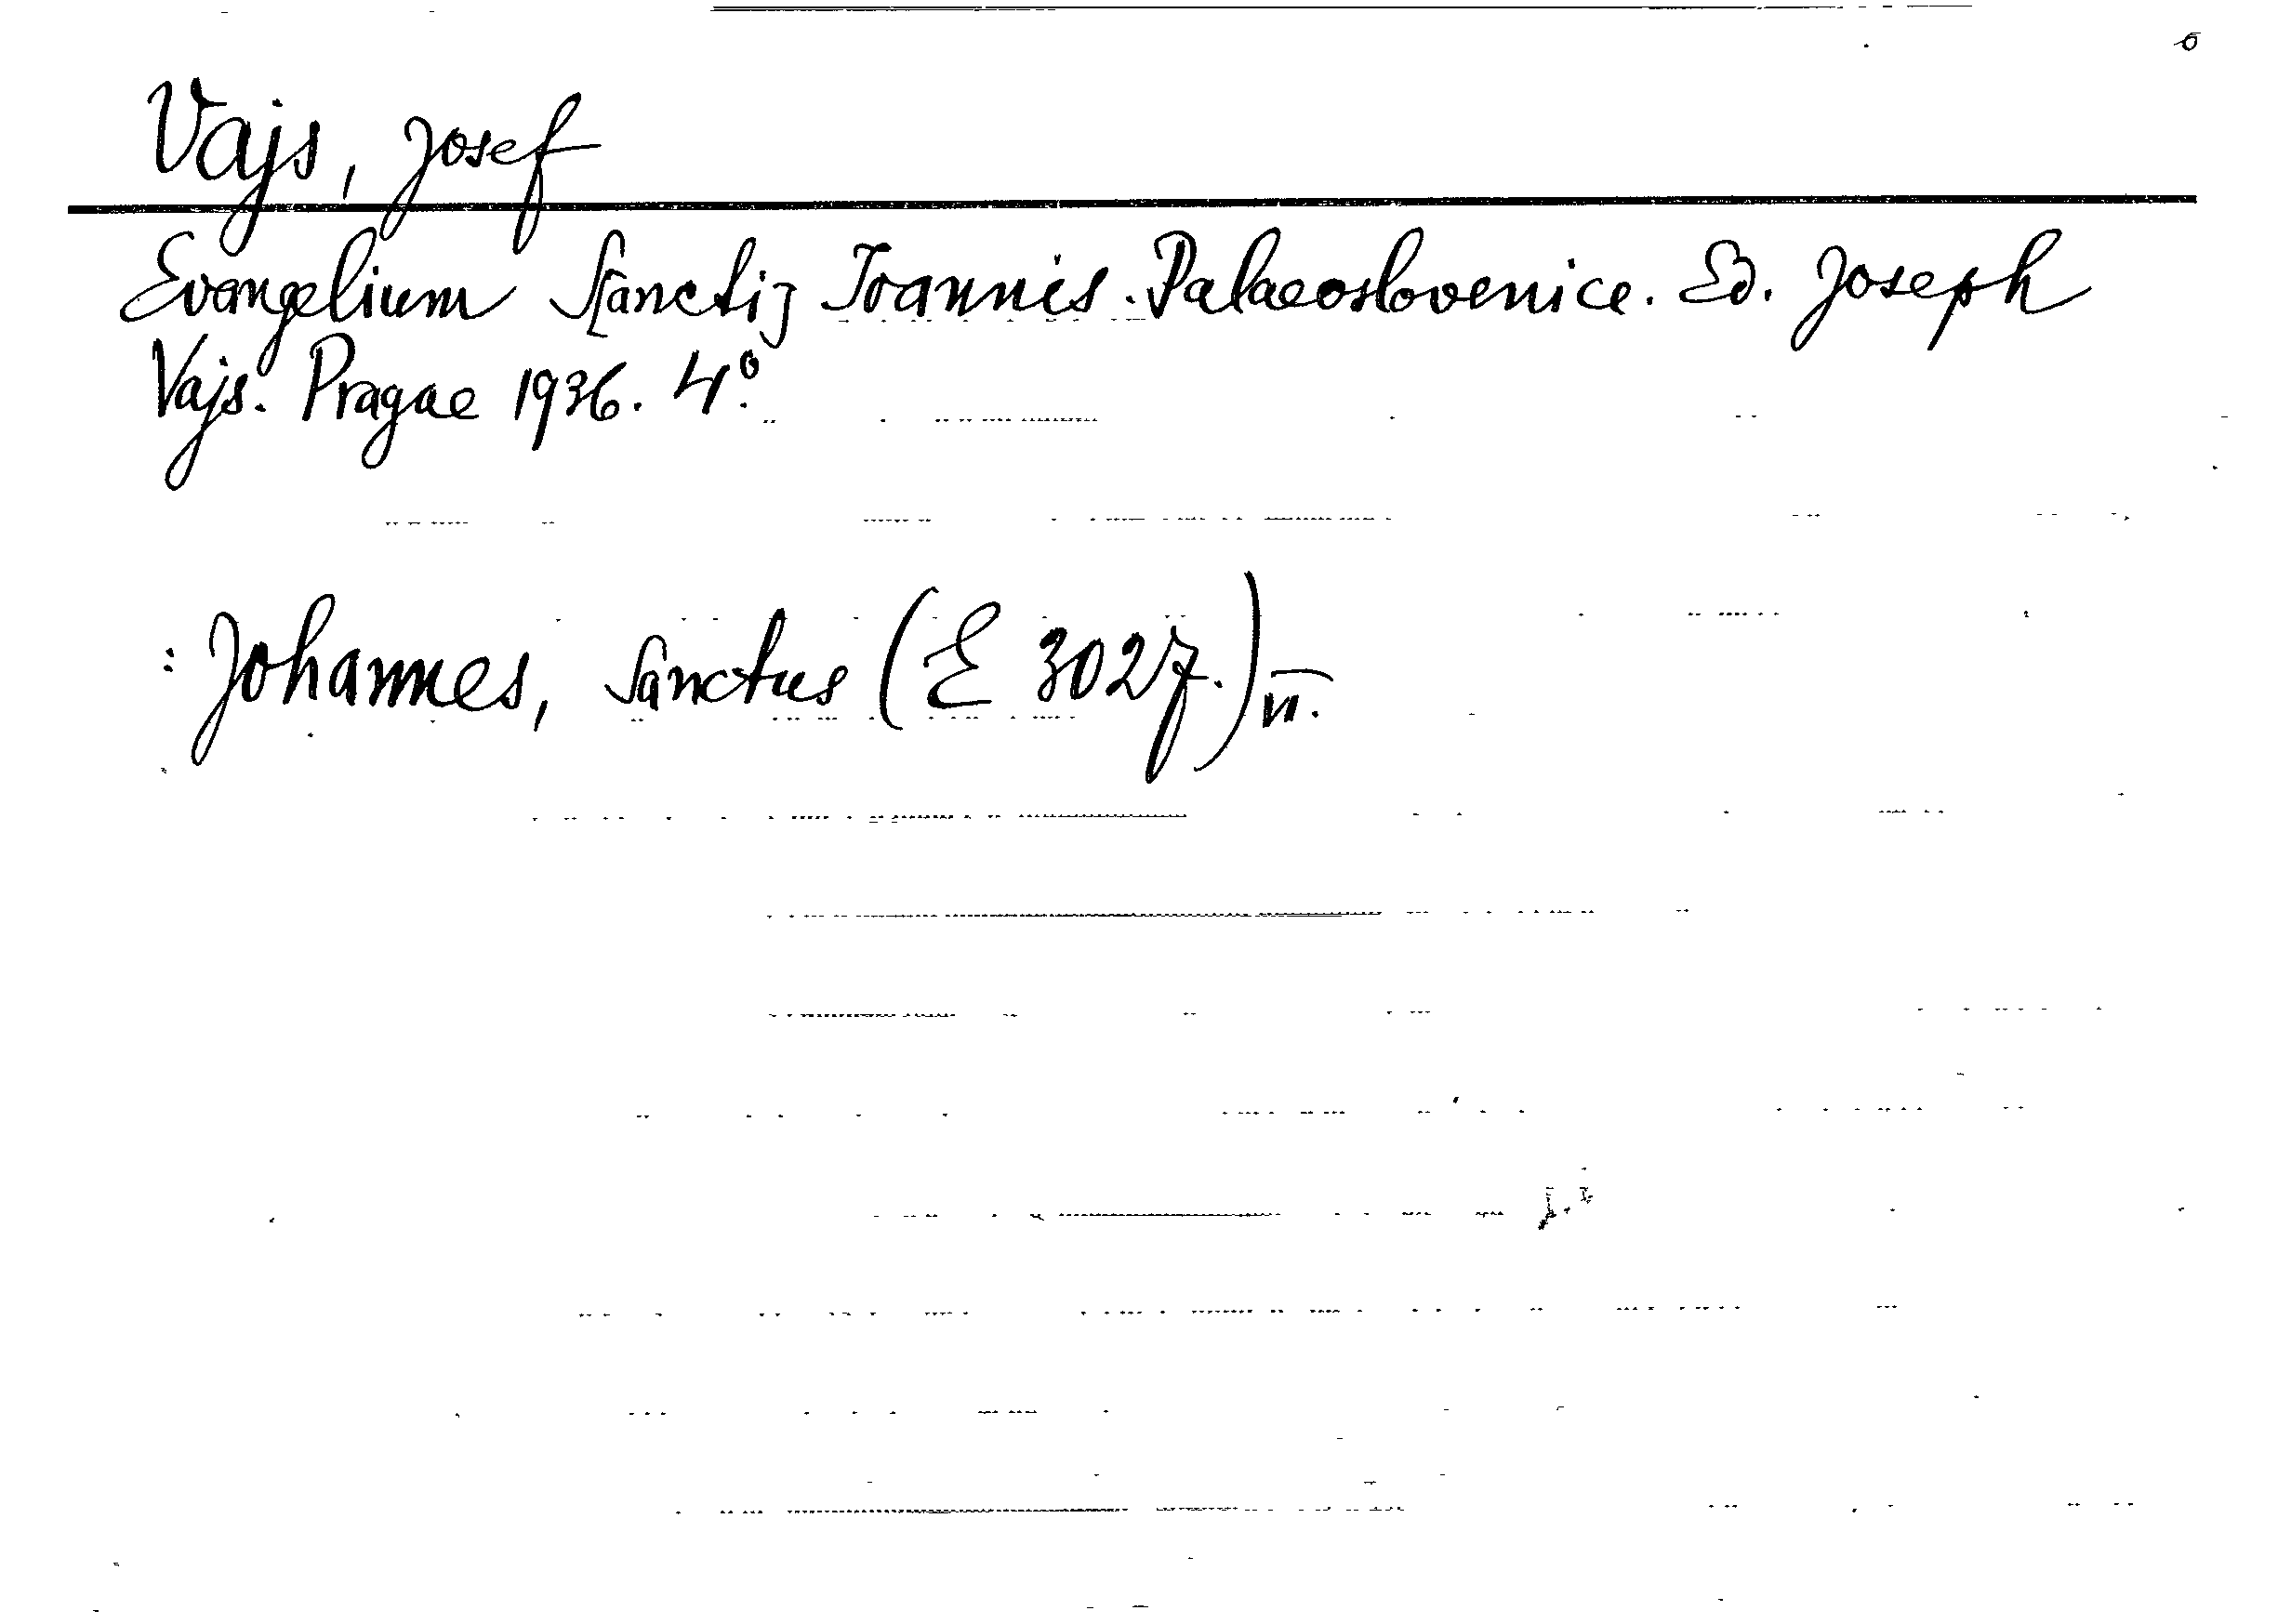 Vajs, Josef
Evangelium S[ancti] Ioannis. Palaeoslovenice. Ed. Joseph
Vajs. Pragae 1936. 4°.
: Johannes, Sanctus (E 3027.) VI.